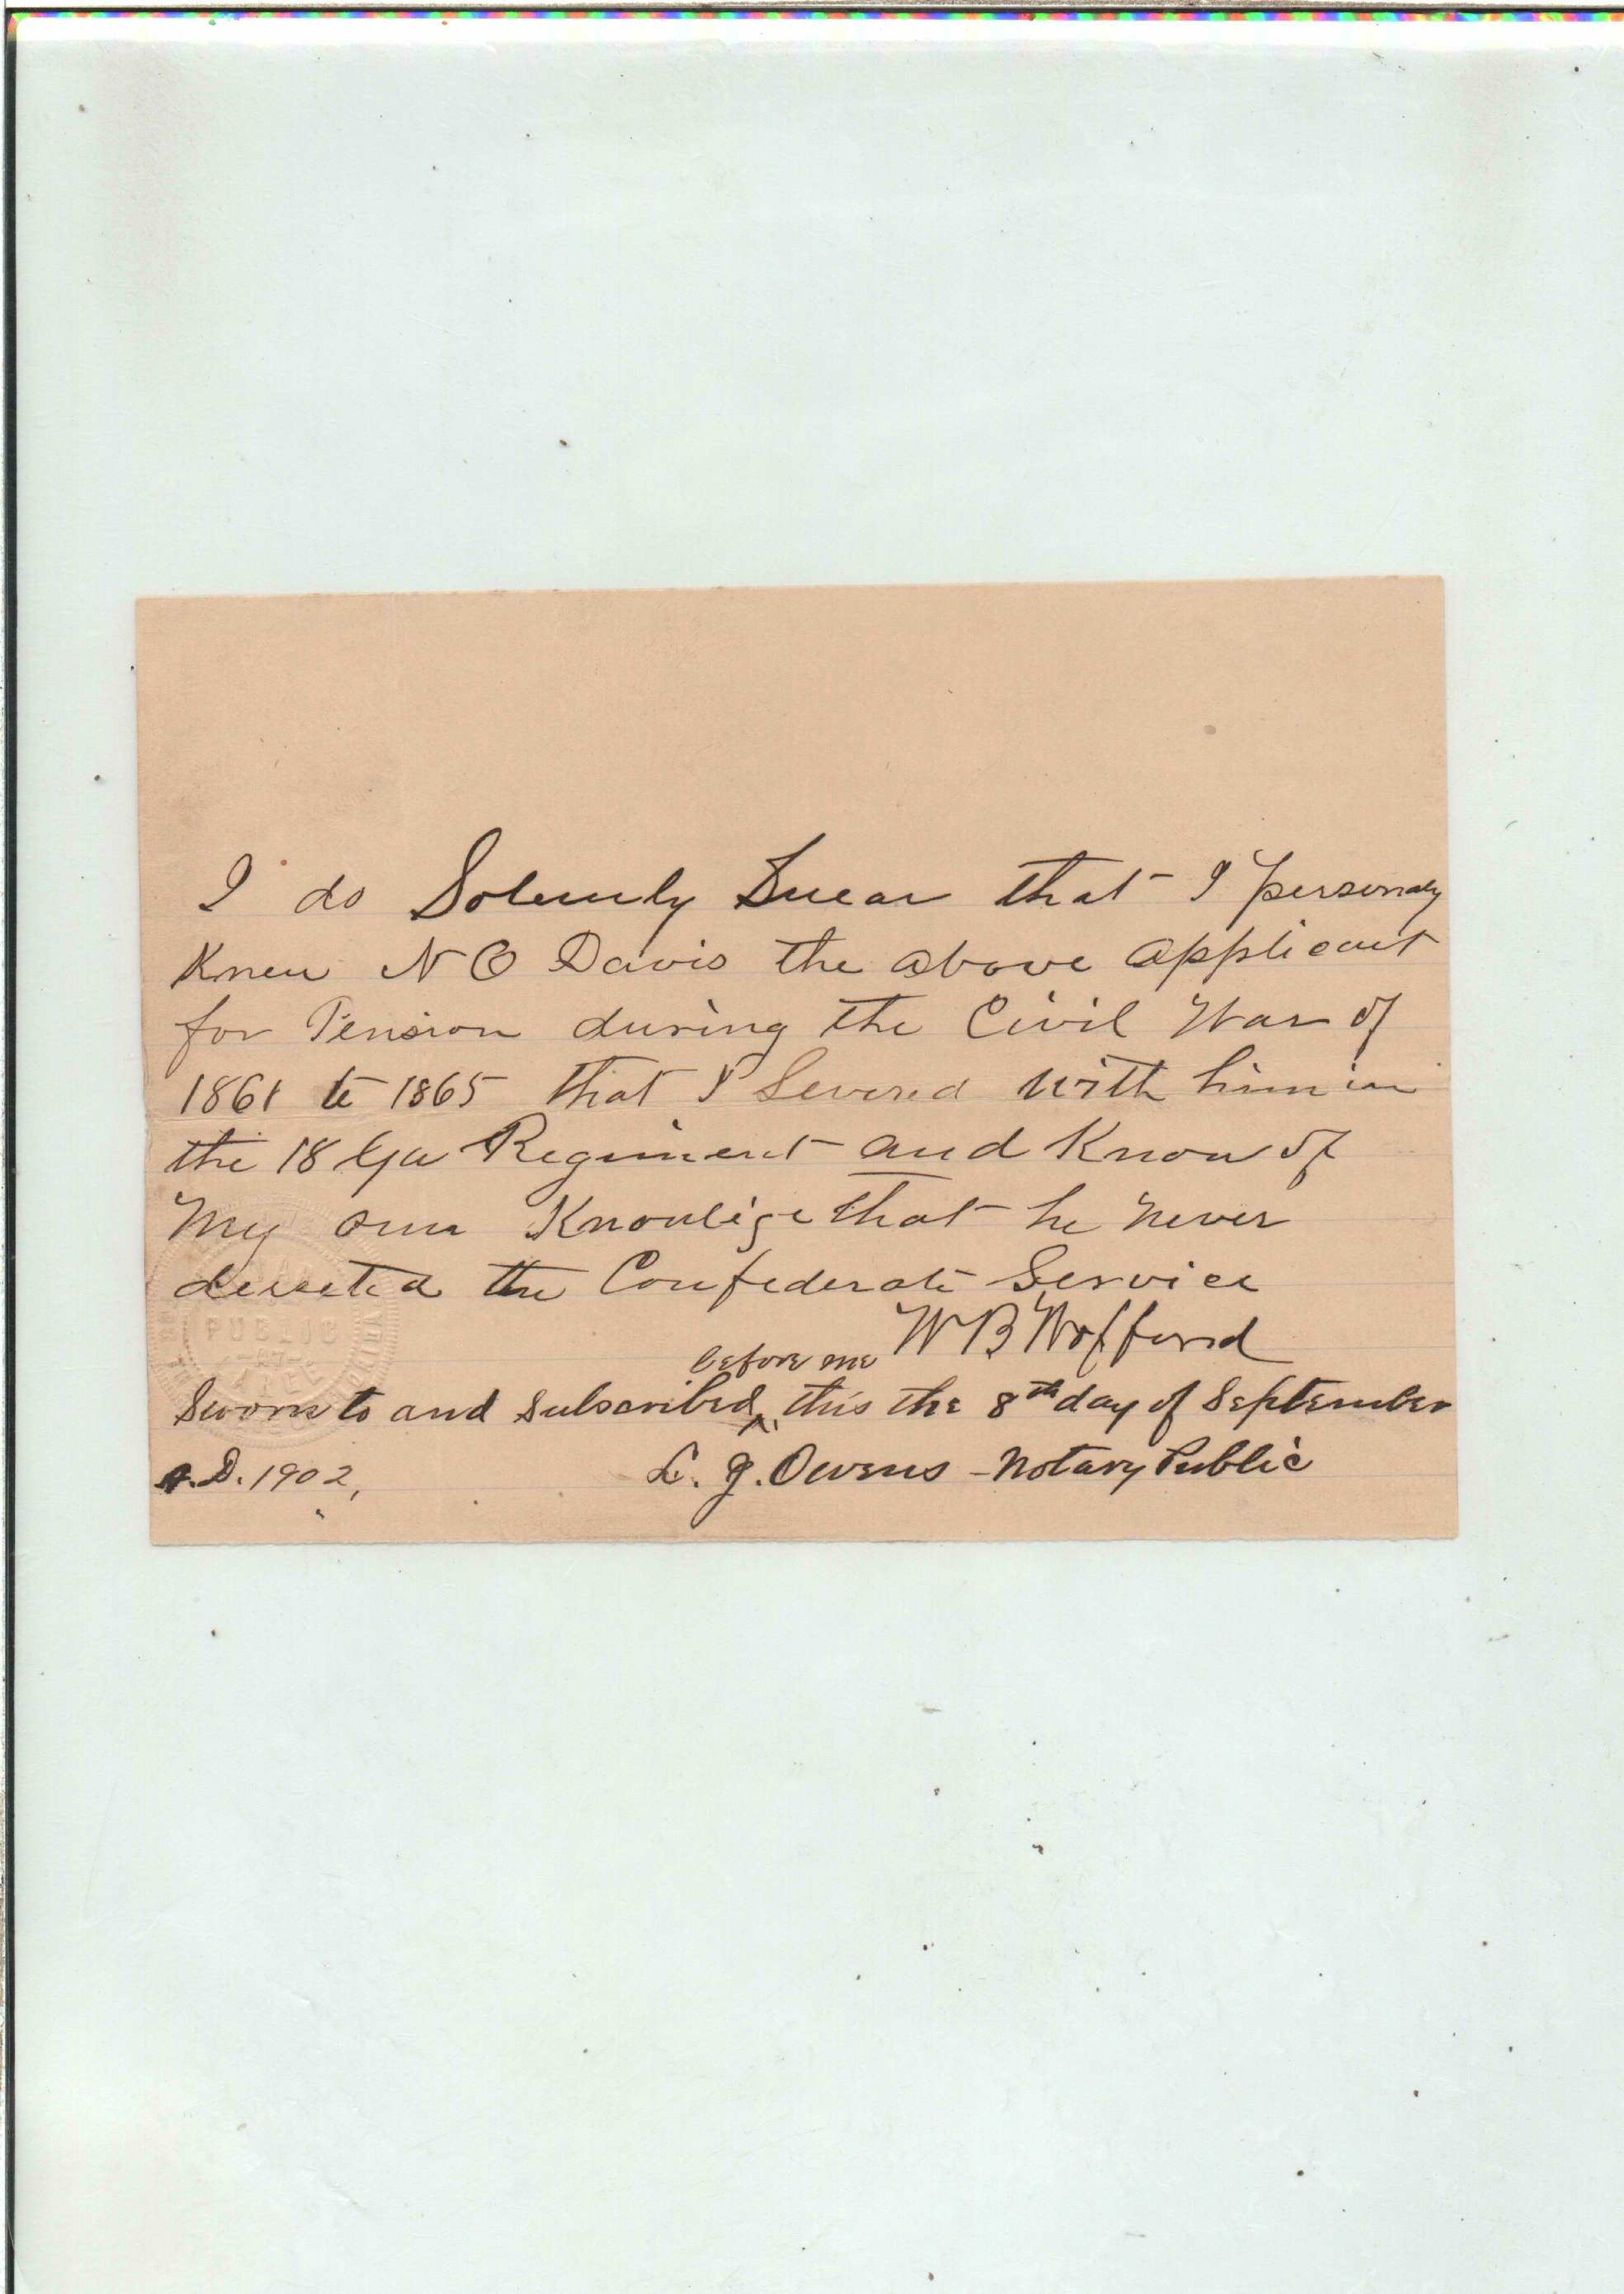 I do Solemnly Swear that I personaly
Knew N O Davis the above applicant
for Pension during the Civil War of
1861 to 1865 that I Severed with him in
the 18 Ga Regiment and Know of
My own Knowlige that he never
deserted the Confederate Service
W B Wofford
before me
Sworn to and subscribed ^ this the 8th day of September
A.D. 1902, L. J. Owens - Notary Public
PUBLIC